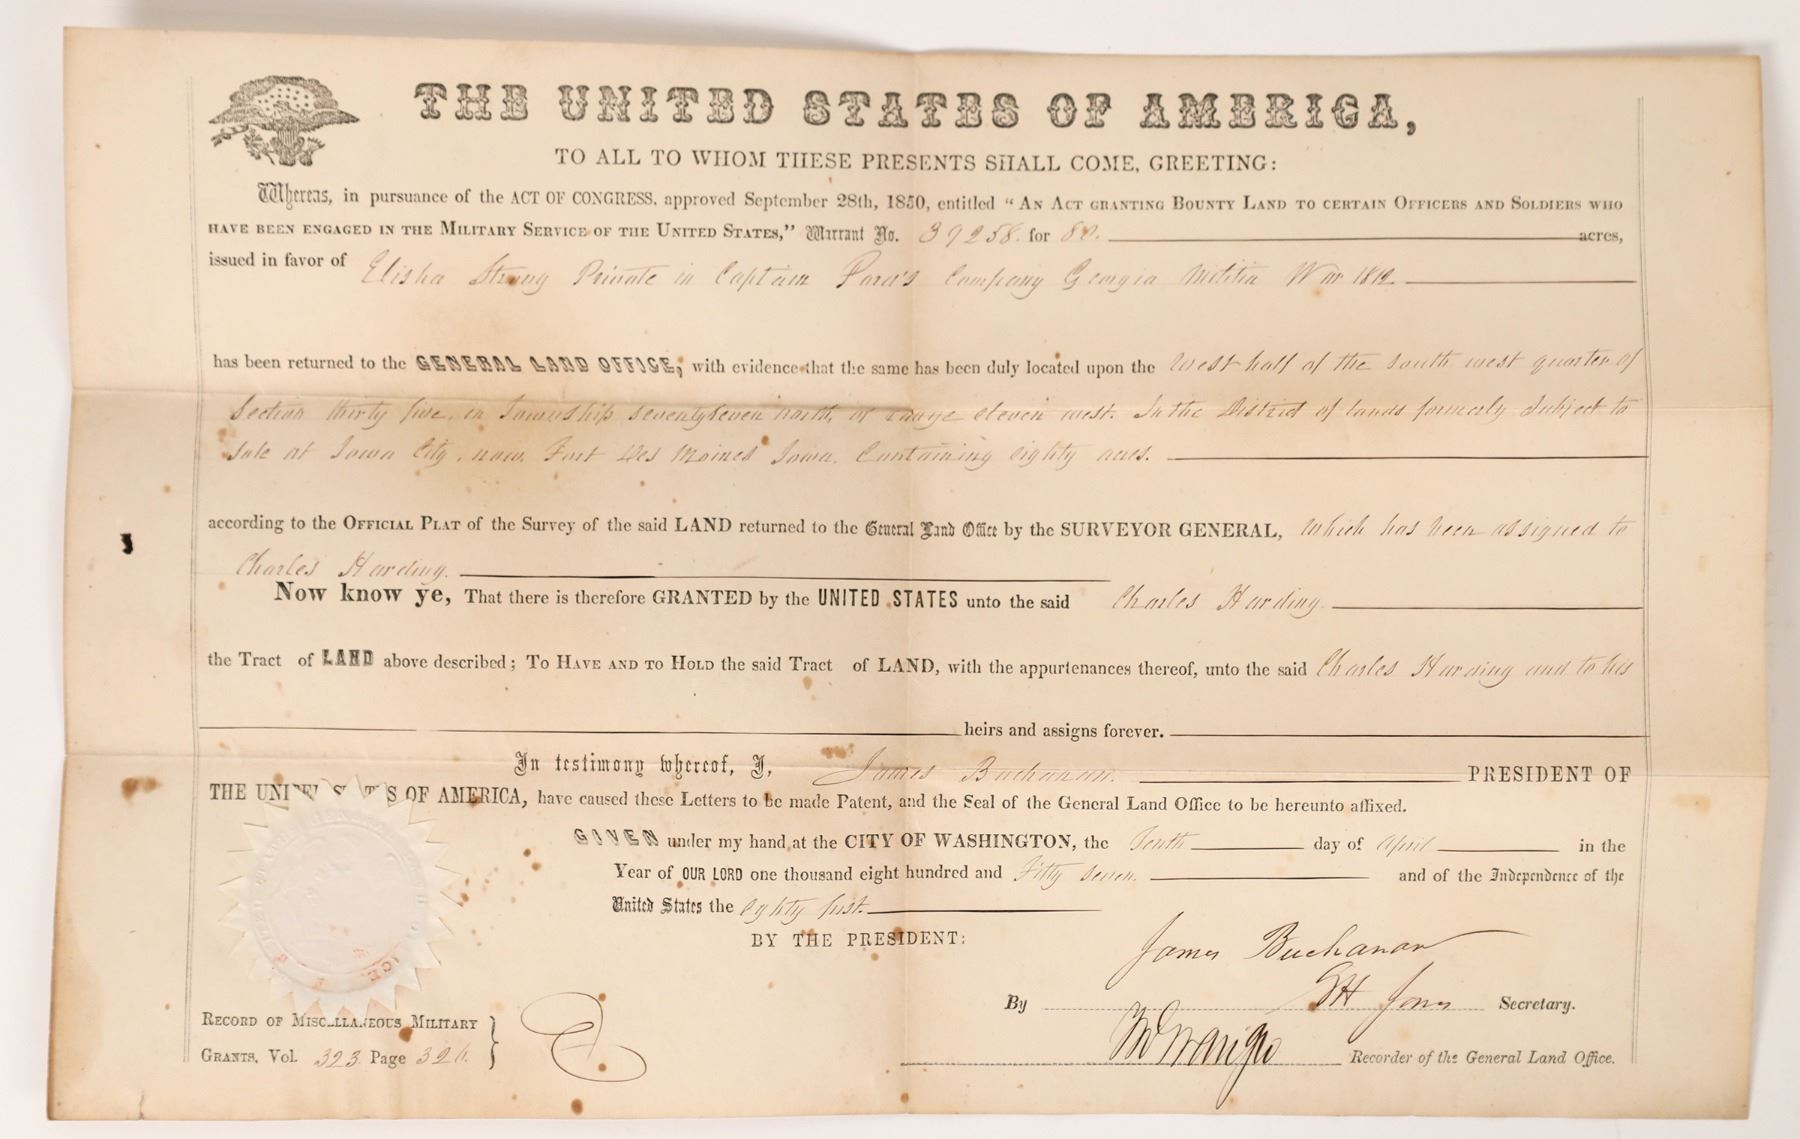 THE UNITED STATES OF AMERICA,
TO ALL TO WHOM THESE PRESENTS SHALL COME, GREETING:
Whereas, in pursuance of the ACT OF CONGRESS, approved September 28th, 1850, entitled "AN ACT GRANTING BOUNTY LAND TO CERTAIN OFFICERS AND SOLDIERS WHO
HAVE BEEN ENGAGED IN THE MILITARY SERVICE OF THE UNITED STATES," Warrant No. 39258. for 80. acres,
issued in favor of Elisha Strong Private in Captain Company Georgia Militia War 1812
has been returned to the GENERAL LAND OFFICE, with evidence that the same has been duly located upon the West half of the south west quarter of
Section thirty five, in Township seventy seven north, of range eleven west. In the District of lands formerly Subject to
Sale at Iowa City, now, Fort Des Moines Iowa. Containing eighty acres.
according to the OFFICIAL PLAT of the Survey of the said LAND returned to the General Land Office by the SURVEYOR GENERAL, Which has been assigned to
Charles Harding.
Now know ye, That there is therefore GRANTED by the UNITED STATES unto the said Charles Harding.
the Tract of LAND above described; TO HAVE AND TO HOLD the said Tract of LAND, with the appurtenances thereof, unto the said Charles Harding and to his
heirs and assigns forever.
In testimony whereof, I, James Buchanan. PRESIDENT OF
THE UNITED STATES OF AMERICA, have caused these Letters to be made Patent, and the Seal of the General Land Office to be hereunto affixed.
GIVEN under my hand at the CITY OF WASHINGTON, the Tenth day of April in the
Year of OUR LORD one thousand eight hundred and Fifty seven. and of the Independence of the
United States the Eighty first.
BY THE PRESIDENT:
James Buchanan
By Jones Secretary.
Recorder of the General Land Office.
RECORD OF MISCELLANEOUS MILITARY
GRANTS, Vol. 323 Page 326.